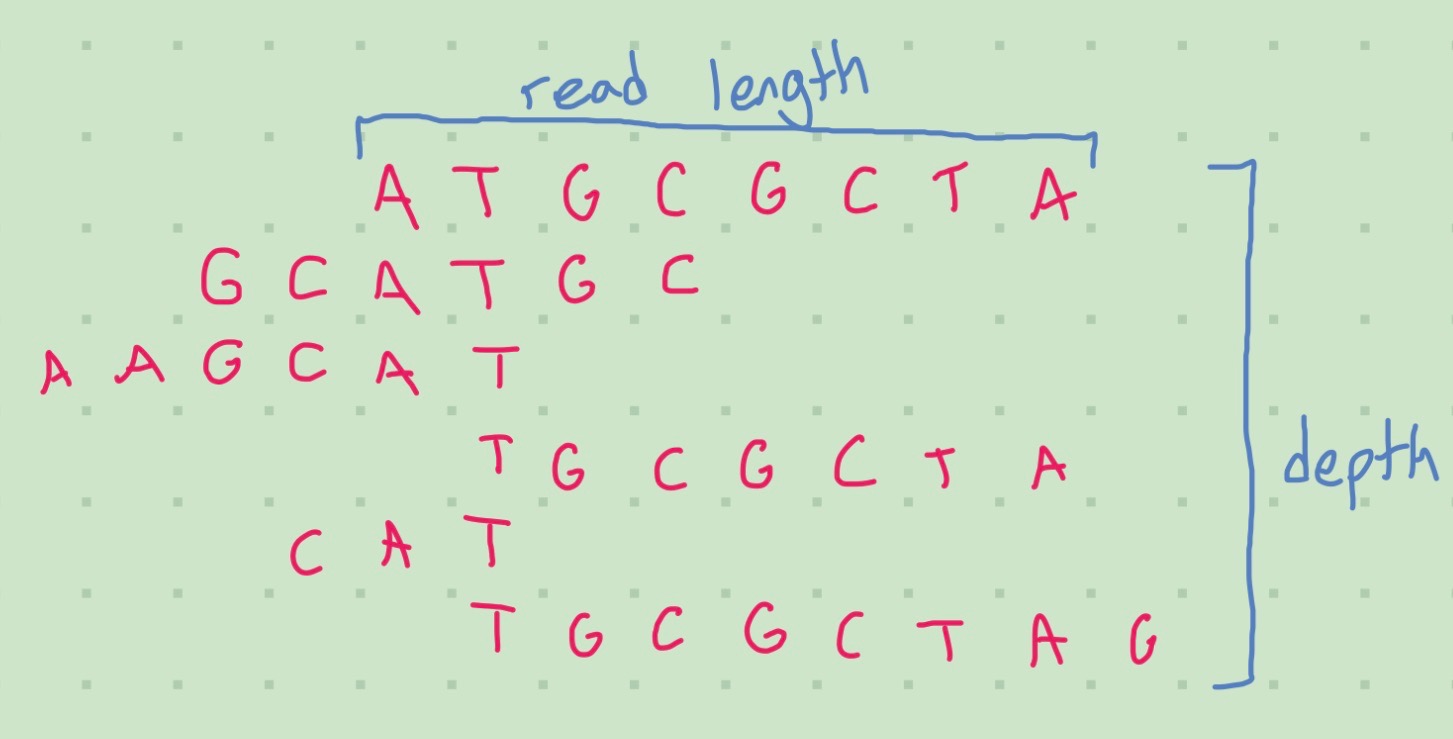 read length
A T G C G C T A
G C A T G C
A A G C A T
T G C G C T A
depth
C A T
T G C G C T A G